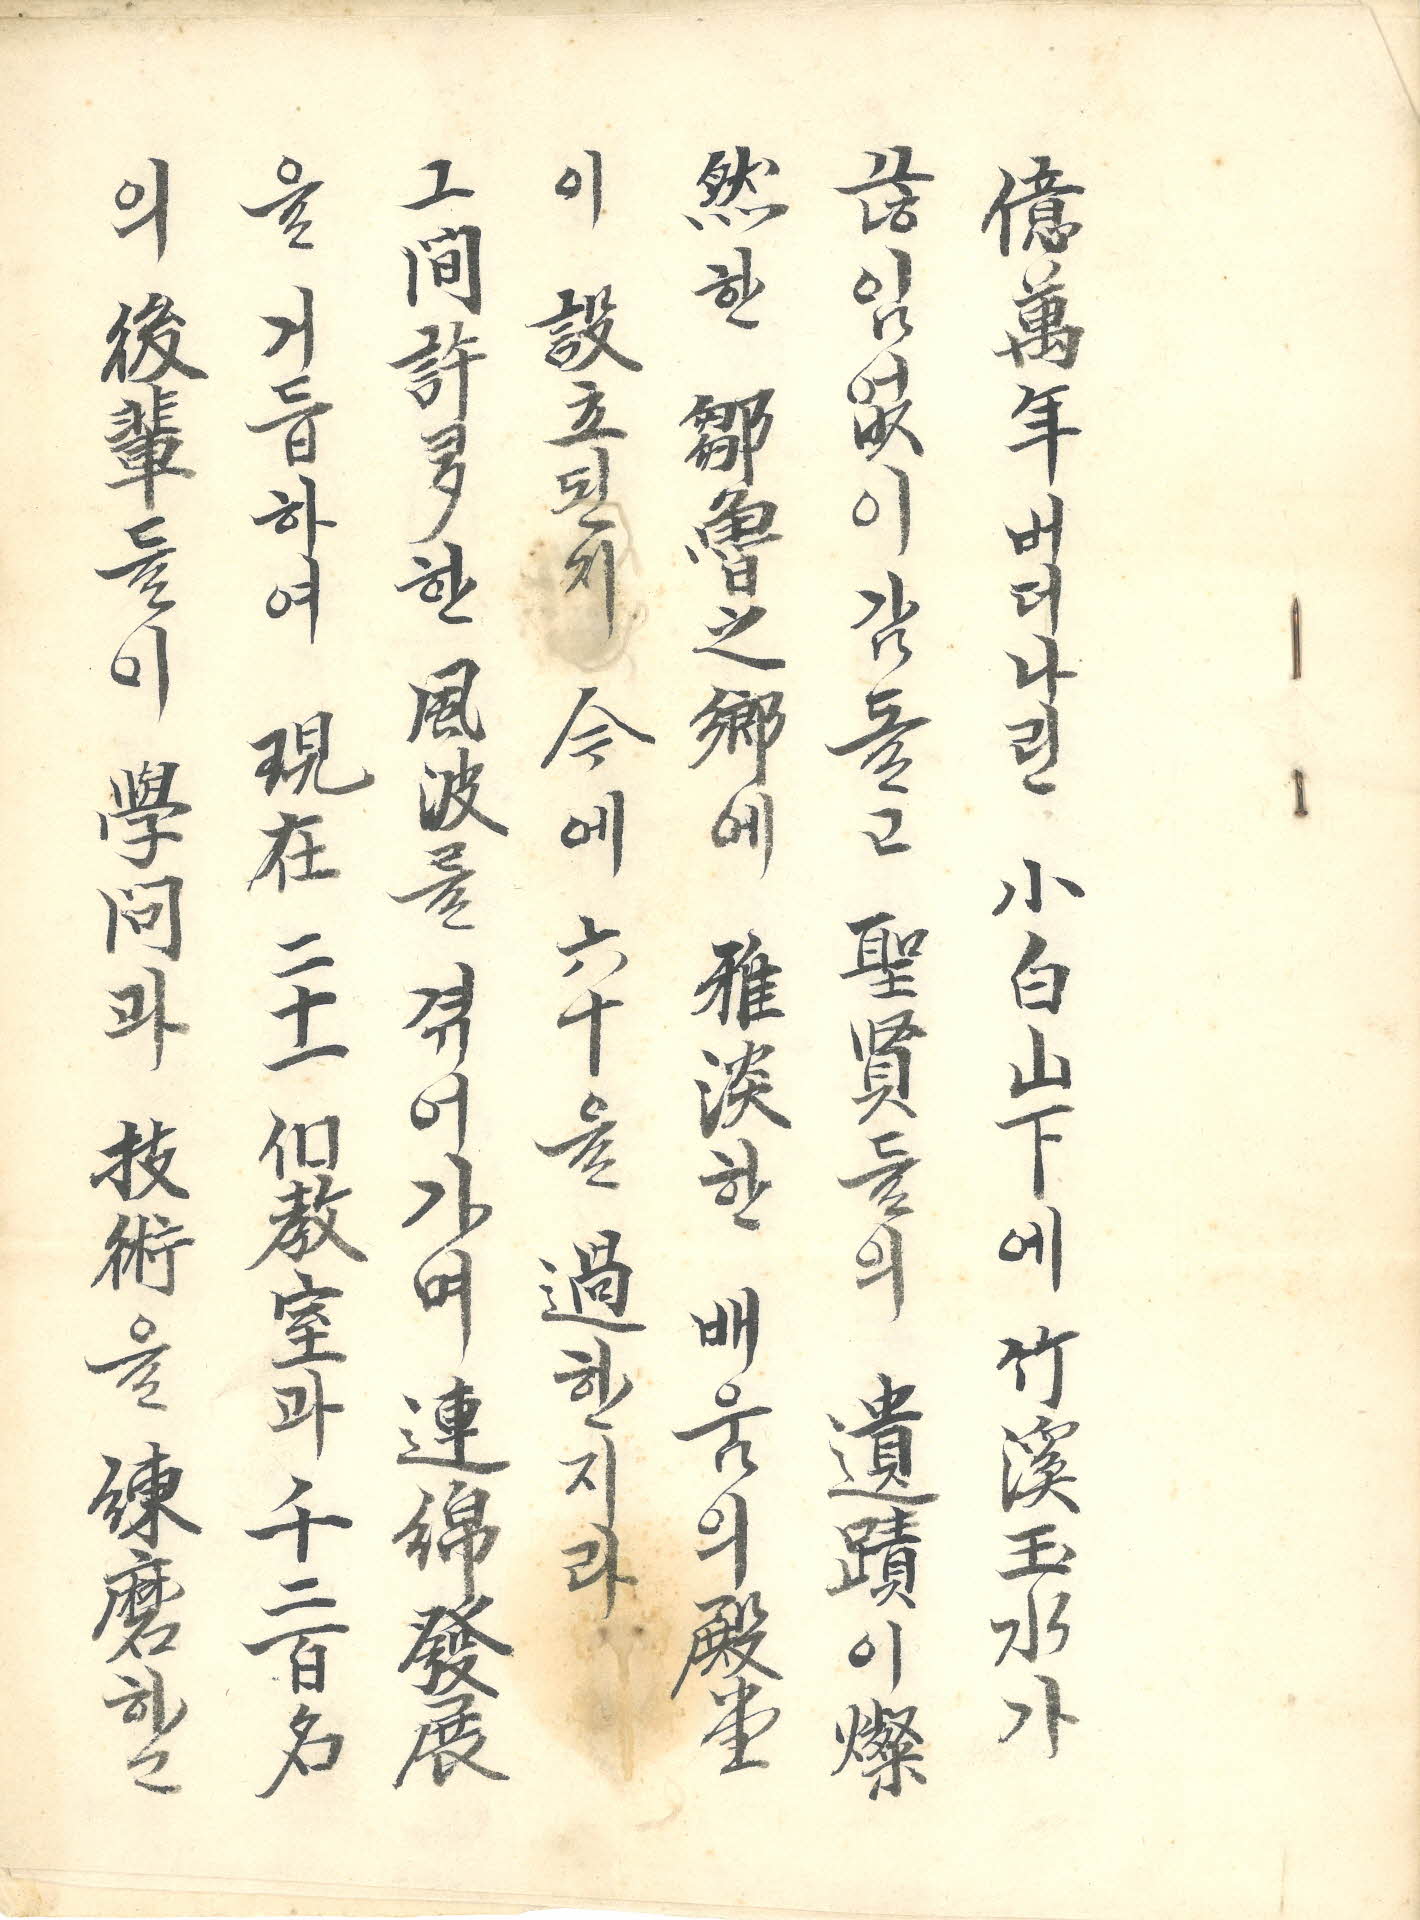 億萬年 버더나린 小白山下에 竹溪玉水가
끊임없이 감돌고 聖賢들의 遺蹟이 燦
然한 鄒魯之鄕에 雅淡한 배움의 殿堂
이 設立된지 今에 六十을 過한지라
그間 許多한 風波를 겪어가며 連綿發展
을 거듭하여 現在 二十一個敎室과 千二百名
의 後輩들이 學問과 技術을 練磨할